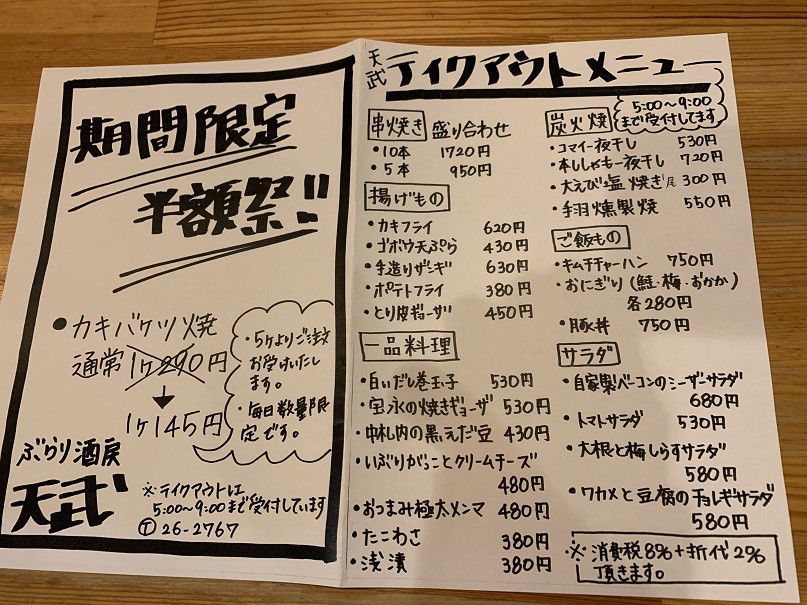 期間限定
半額祭!!
・カキバケツ焼
通常1ケ290円
1ケ145円
・5ケよりご注文
お受けいたし
ます。
・毎日数量限
定です。
ぶらり酒房
天武
※テイクアウトは
5:00〜9:00まで受付しています
26-2767
天武
テイクアウトメニュー
5:00〜9:00
まで受付してます
串焼き 盛り合わせ
・10本 1720円
・5本 950円
揚げもの
・カキフライ 620円
・ゴボウ天ぷら 430円
・手造りザンギ 630円
・ポテトフライ 380円
・とり皮ギョーザ 450円
一品料理
・白いだし巻玉子 530円
・宝永の焼きギョーザ 530円
・中札内の黒えだ豆 430円
・いぶりがっことクリームチーズ
480円
・おつまみ極太メンマ 480円
・たこわさ 380円
・浅漬 380円
炭火焼
・コマイ一夜干し 530円
・本ししゃも一夜干し 720円
・大えび塩焼き1尾 300円
・手羽燻製焼 550円
ご飯もの
・キムチチャーハン 750円
・おにぎり(鮭・梅・おかか)
各280円
・豚丼 750円
サラダ
・自家製ベーコンのシーザーサラダ
680円
・トマトサラダ 530円
・大根と梅しらすサラダ
580円
・ワカメと豆腐のチョレギサラダ
580円
※消費税8%+折代2%
頂きます。